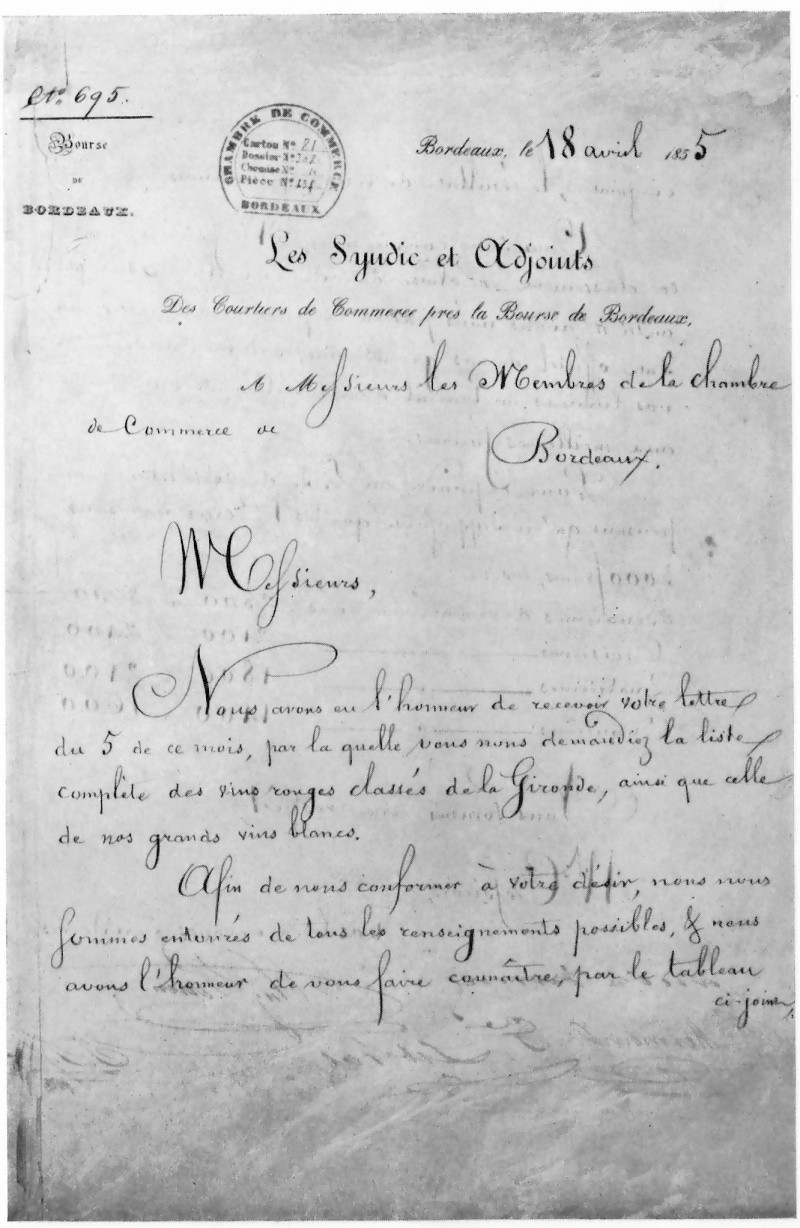 No. 695.
Bourse
DE
BORDEAUX.
CHAMBRE DE COMMERCE
Carton No 21
Dossier No
Chemise No
Pièce No
BORDEAUX
Bordeaux, le 18 avril 1855
Les Syndic et Adjoints
Des Courtiers de Commerce près la Bourse de Bordeaux,
A Messieurs les Membres de la Chambre
de Commerce de
Bordeaux.
Messieurs,
Nous avons eu l'honneur de recevoir votre lettre
du 5 de ce mois, par la quelle vous nous demandiez la liste
complète des vins rouges classés de la Gironde, ainsi que celle
de nos grands vins blancs.
Afin de nous conformer à votre désir, nous nous
sommes entourés de tous les renseignements possibles, & nous
avons l'honneur de vous faire connaître, par le tableau
ci-joint,